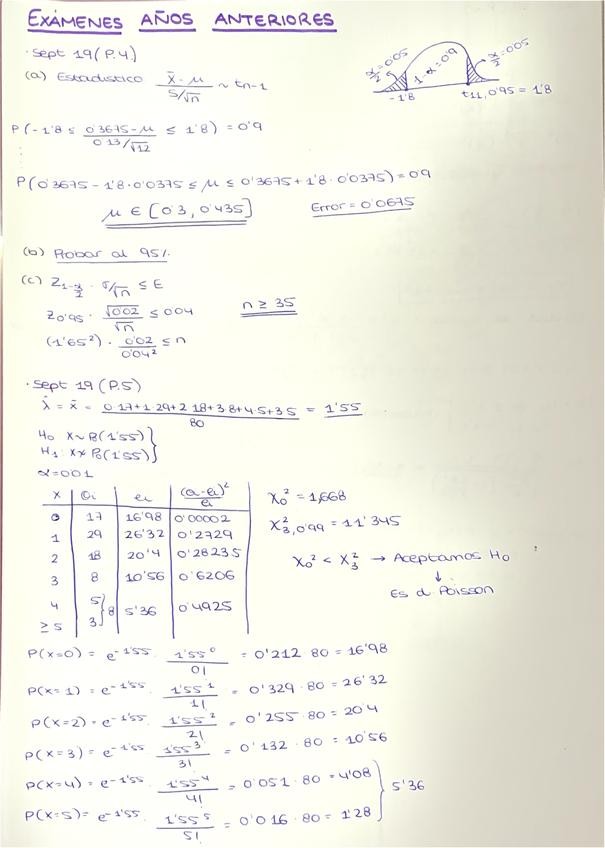 EXÁMENES AÑOS ANTERIORES
· Sept 19 (P.4)
(a) Estadístico (x̄ - μ)/(S/√n) ~ tn-1
α/2 = 0'05 1-α = 0'9 α/2 = 0'05
-1'8 t11, 0'95 = 1'8
P(-1'8 ≤ (0'3675 - μ)/(0'13/√12) ≤ 1'8) = 0'9
⋮
P(0'3675 - 1'8 · 0'0375 ≤ μ ≤ 0'3675 + 1'8 · 0'0375) = 0'9
μ ∈ [0'3, 0'435] Error = 0'0675
(b) Probar al 95%.
(c) Z1-α/2 · σ/√n ≤ E
Z0'95 · √0'02/√n ≤ 0'04 n ≥ 35
(1'65²) · 0'02/0'04² ≤ n
· Sept 19 (P.5)
λ̂ = x̄ = (0·17+1·29+2·18+3·8+4·5+3·5)/80 = 1'55
H0 X ~ P(1'55)
H1: X ≁ P0(1'55)
α = 0'01
X Oi ei (Oi - ei)²/ei
0 17 16'98 0'00002
1 29 26'32 0'2729
2 18 20'4 0'28235
3 8 10'56 0'6206
4 5 } 8 5'36 0'4925
≥ 5 3
X0² = 1,668
X²3, 0'99 = 11'345
X0² < X3² → Aceptamos H0
↓
Es d. Poisson
P(x=0) = e-1'55 · 1'55⁰/0! = 0'212 · 80 = 16'98
P(x=1) = e-1'55 · 1'55¹/1! = 0'329 · 80 = 26'32
P(x=2) = e-1'55 · 1'55²/2! = 0'255 · 80 = 20'4
P(x=3) = e-1'55 · 1'55³/3! = 0'132 · 80 = 10'56
P(x=4) = e-1'55 · 1'55⁴/4! = 0'051 · 80 = 4'08 } 5'36
P(x=5) = e-1'55 · 1'55⁵/5! = 0'016 · 80 = 1'28